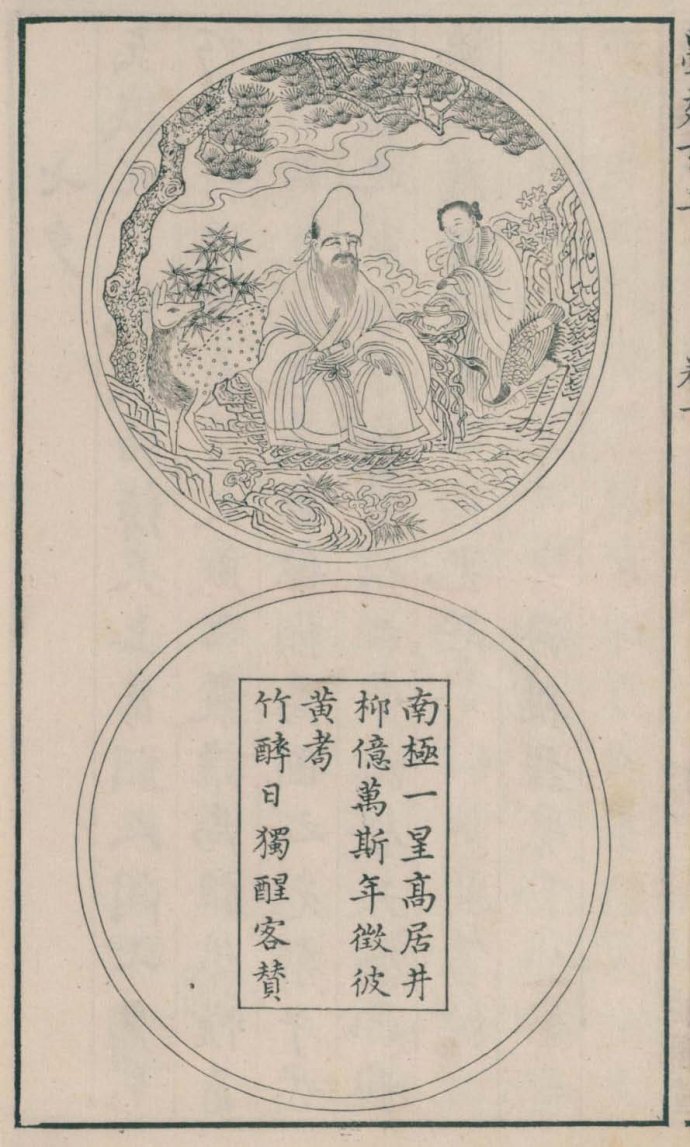 南極一星高居井
柳億萬斯年徵彼
黄耇
竹醉日獨醒客賛